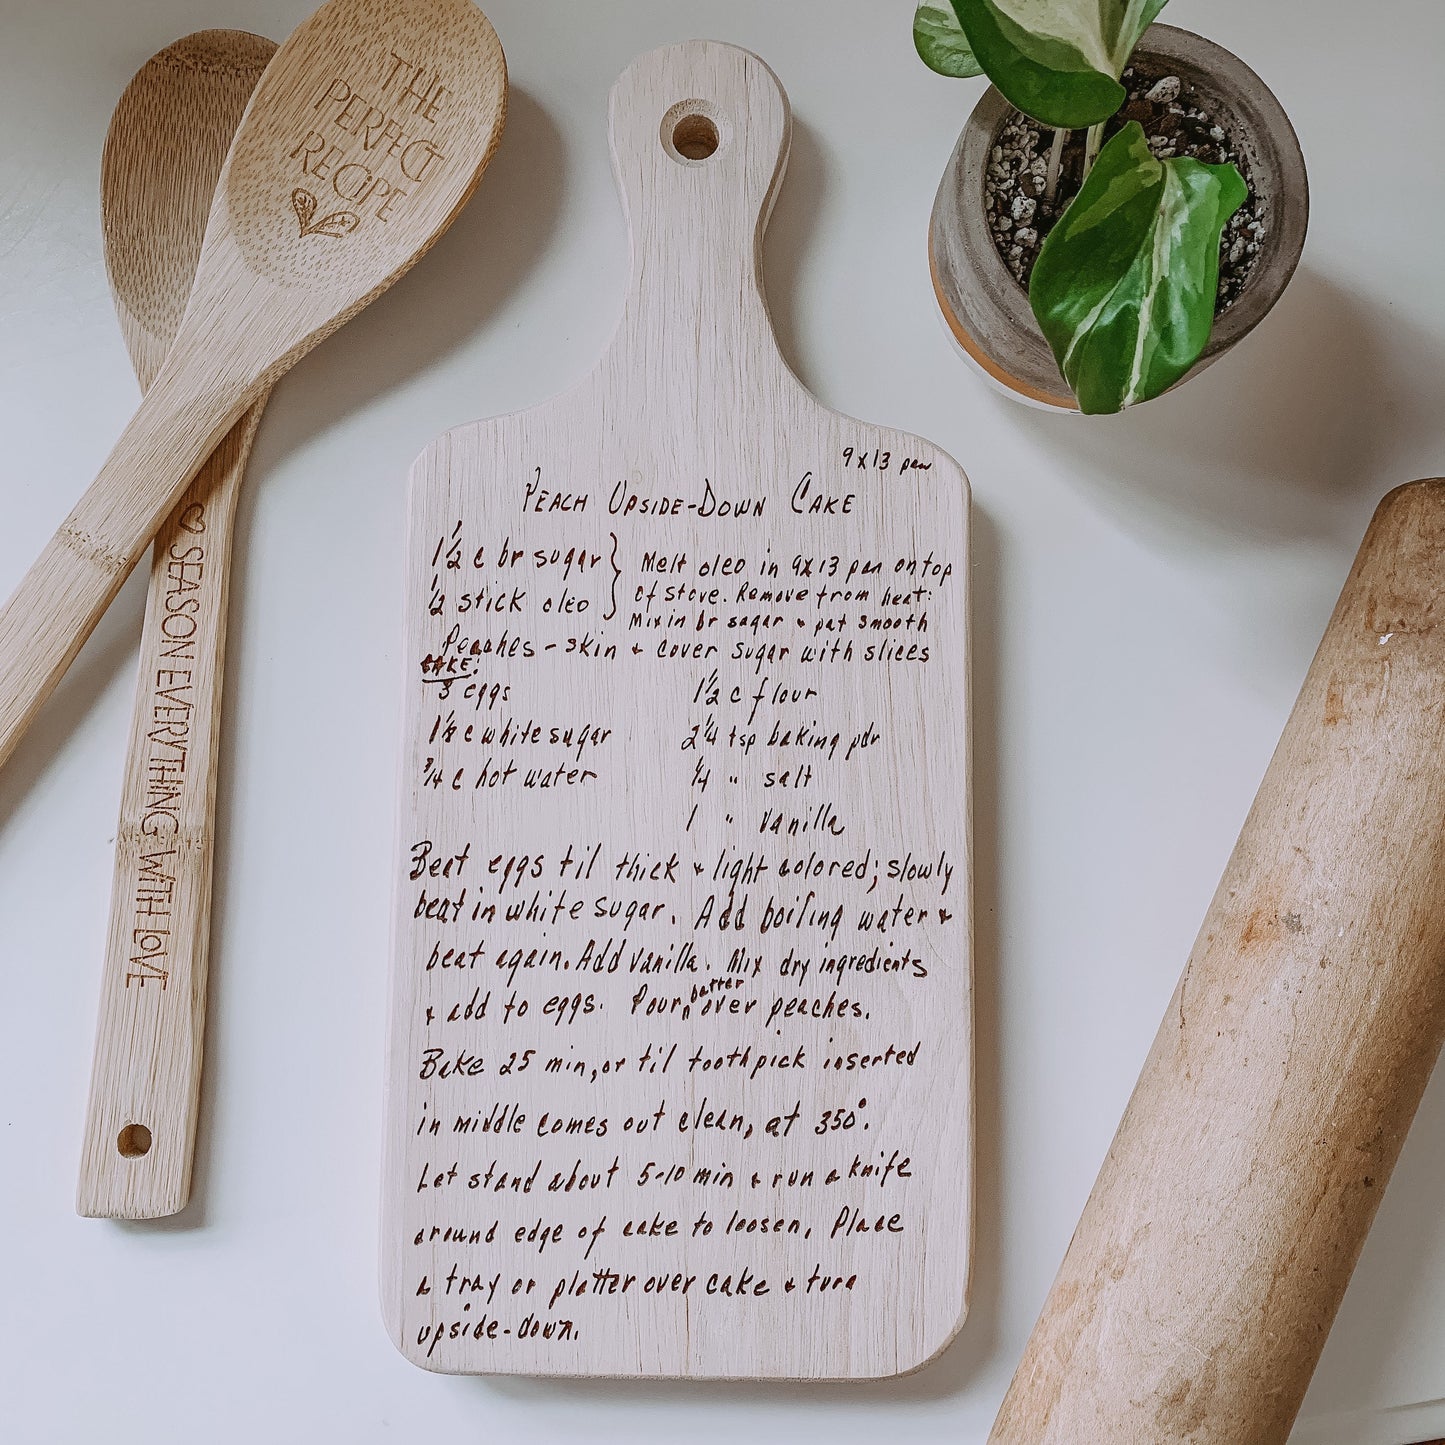 THE
PERFECT
RECIPE
SEASON EVERYTHING WITH LOVE
9x13 pan
PEACH UPSIDE-DOWN CAKE
1 1/2 c br sugar
1/2 stick oleo
Melt oleo in 9x13 pan on top
of stove. Remove from heat:
Mix in br sugar + pat smooth
Peaches - skin + cover sugar with slices
CAKE:
3 eggs
c white sugar
3/4 c hot water
1 1/2 c flour
2 1/4 tsp baking pdr
1/4 " salt
1 " vanilla
Beat eggs til thick + light colored; slowly
beat in white sugar. Add boiling water +
beat again. Add vanilla. Mix dry ingredients
+ add to eggs. Pour batter over peaches.
Bake 25 min, or til toothpick inserted
in middle comes out clean, at 350°.
Let stand about 5-10 min + run a knife
around edge of cake to loosen, Place
a tray or platter over cake + turn
upside-down.